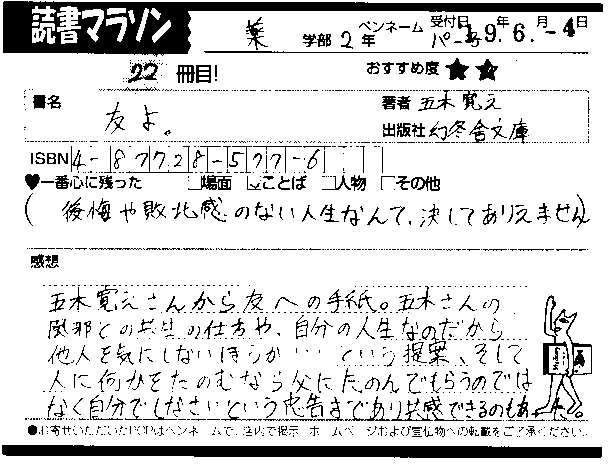 読書マラソン 薬 学部 2年 ペンネーム パーラ 受付日 19年6月-4日
22 冊目! おすすめ度 ★★
書名 友よ。 著者 五木寛之
出版社 幻冬舎文庫
ISBN 4-87728-577-6
♥一番心に残った □場面 ☑ことば □人物 □その他
(後悔や敗北感のない人生なんて、決してありえません)
感想
五木寛之さんから友への手紙。五木さんの
風邪との共生の仕方や、自分の人生なのだから
他人を気にしないほうがいいという提案、そして
人に何かをたのむなら父にたのんでもらうのでは
なく自分でしなさいという忠告まであり共感できるのもあった。
●お寄せいただいたPOPはペンネームで、店内で掲示 ホームページおよび宣伝物への転載をご了承ください。